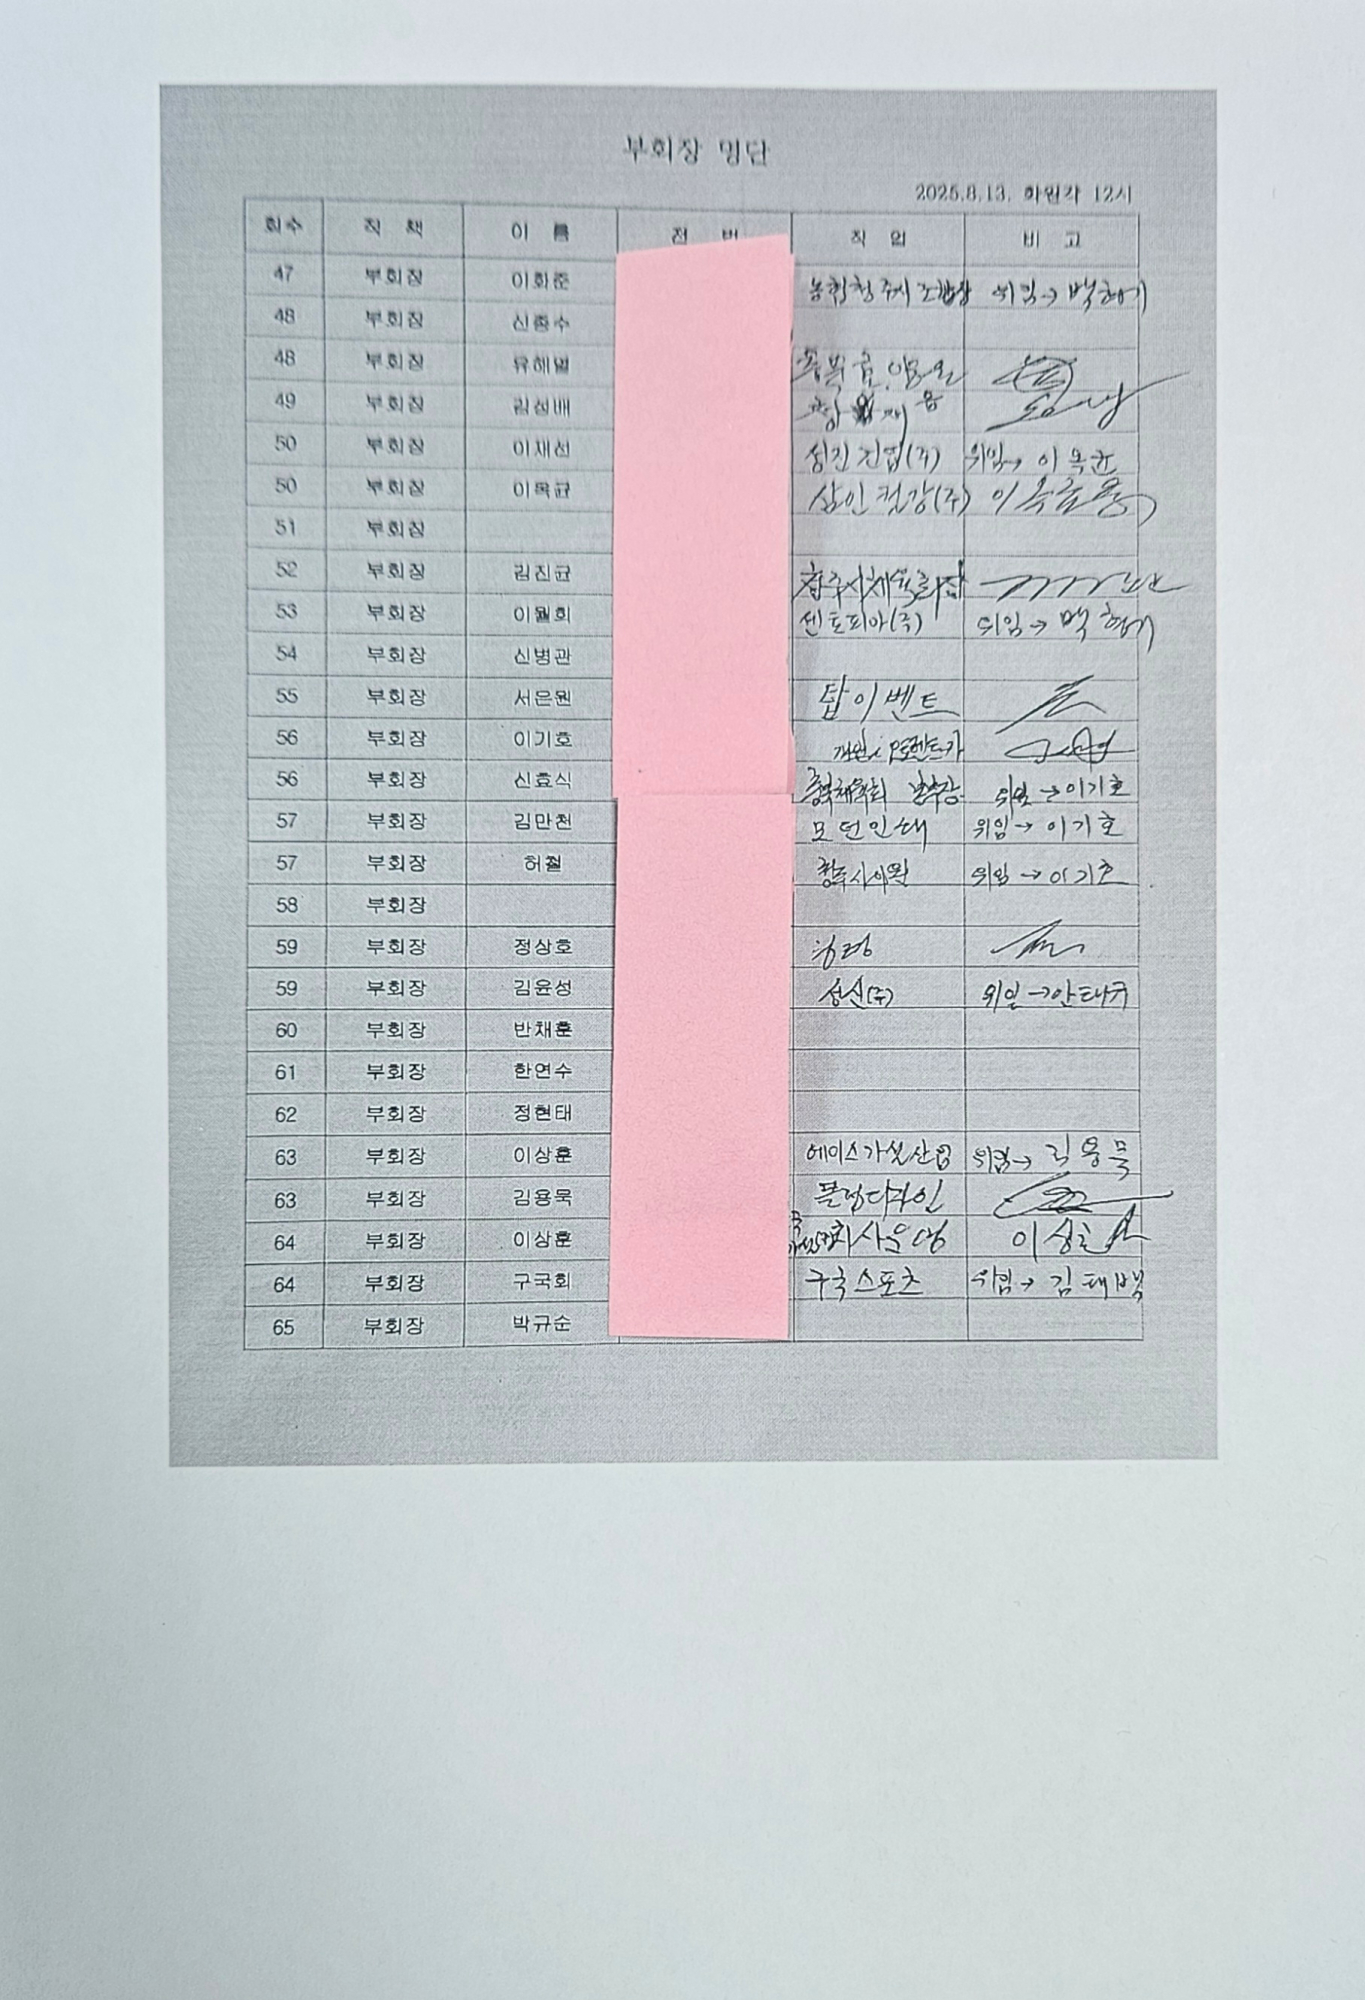 부회장 명단
2025.8.13. 화원각 12시
회수 직 책 이 름 전 번 직 업 비 고
47 부회장 이화준 위임→
48 부회장 신종수
48 부회장 유해열
49 부회장 김성배
50 부회장 이재선 성진건업(주) 위임→ 이옥균
50 부회장 이옥균 삼인철강(주)
51 부회장
52 부회장 김진균 청주시체육회
53 부회장 이월희 센토피아(주) 위임→
54 부회장 신병관
55 부회장 서은원 탑이벤트
56 부회장 이기호
56 부회장 신효식 충북체육회 위임→이기호
57 부회장 김만천 모던인테 위임→이기호
57 부회장 허철 청주시의원 위임→이기호
58 부회장
59 부회장 정상호
59 부회장 김윤성 성신(주) 위임→
60 부회장 반채훈
61 부회장 한연수
62 부회장 정현태
63 부회장 이상훈 에이스가설산업 위임→ 김용묵
63 부회장 김용묵 디자인
64 부회장 이상훈
64 부회장 구국회 구국스포츠 위임→ 김태백
65 부회장 박규순